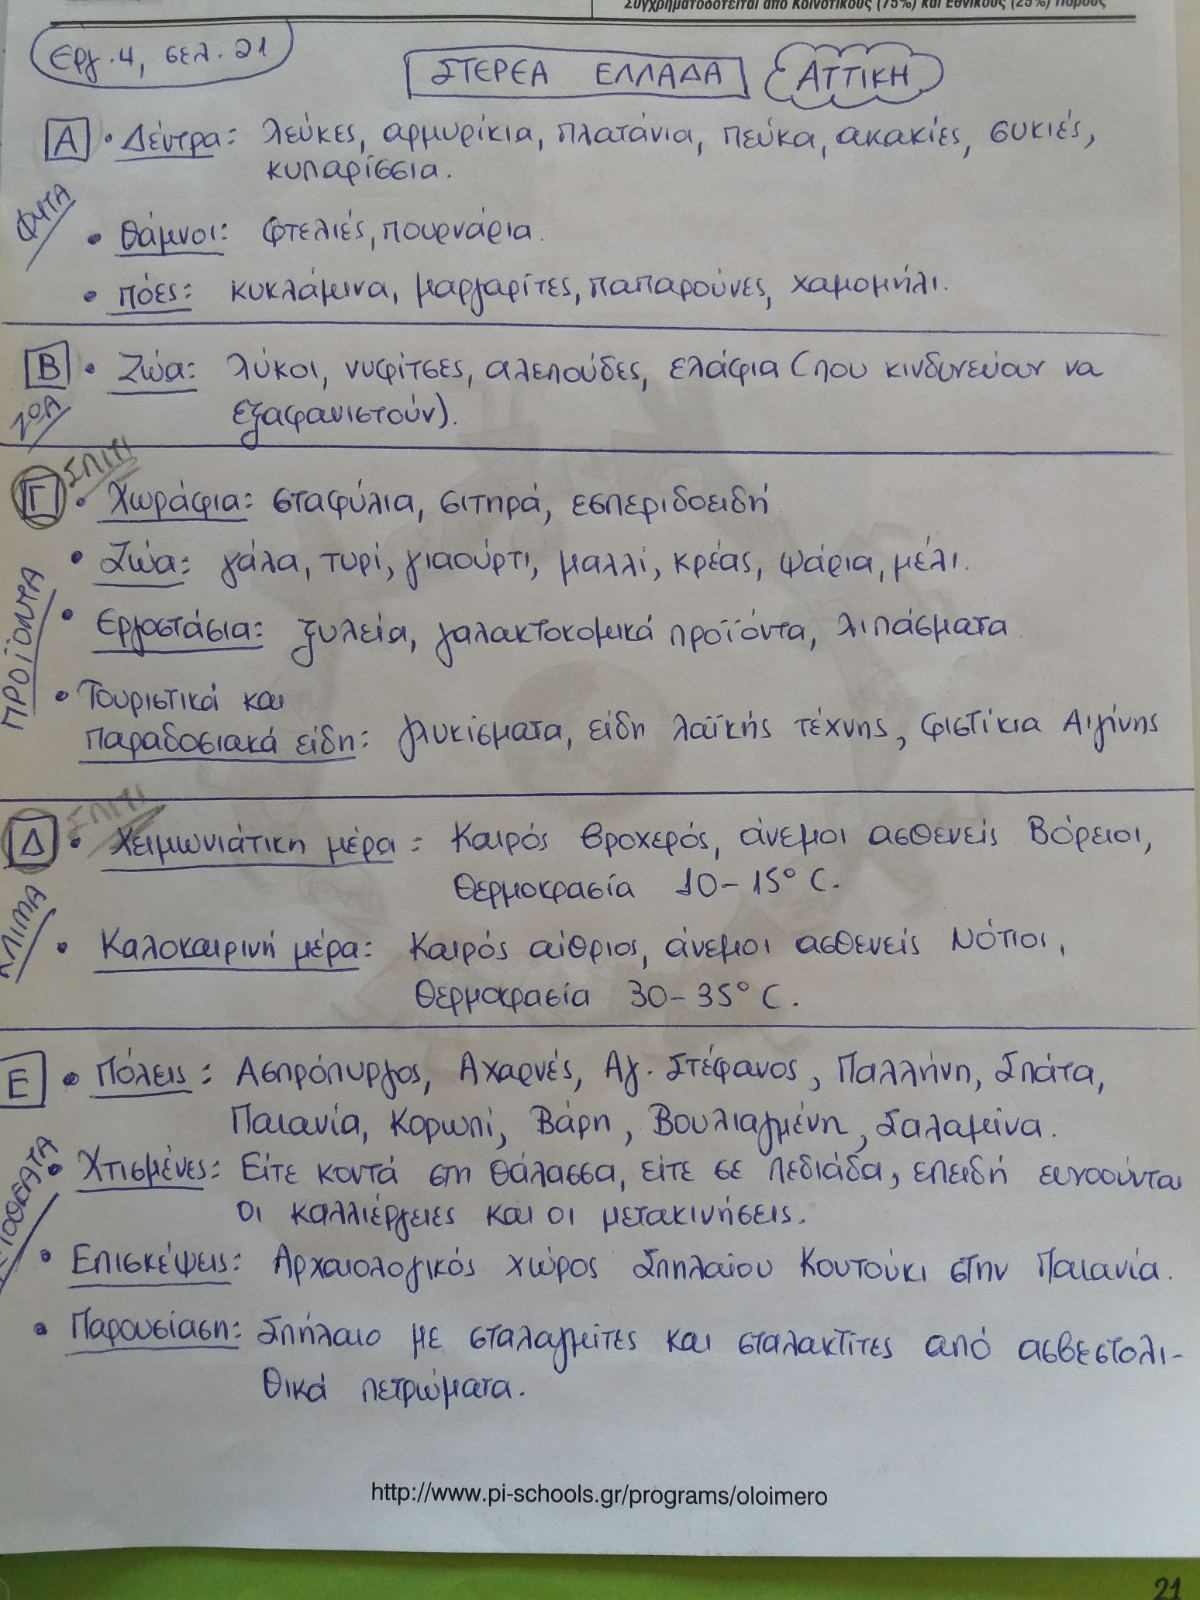 Συγχρηματοδοτείται από Κοινοτικούς (75%) και Εθνικούς (25%) Πόρους
Εργ. 4, σελ. 21
ΣΤΕΡΕΑ ΕΛΛΑΔΑ ΑΤΤΙΚΗ
Α • Δέντρα: λεύκες, αρμυρίκια, πλατάνια, πεύκα, ακακίες, συκιές,
κυπαρίσσια.
ΦΥΤΑ
• Θάμνοι: φτελιές, πουρνάρια.
• Πόες: κυκλάμινα, μαργαρίτες, παπαρούνες, χαμομήλι.
Β • Ζώα: λύκοι, νυφίτσες, αλεπούδες, ελάφια (που κινδυνεύουν να
εξαφανιστούν).
ΖΩΑ
ΣΠΙΤΙ
Γ • Χωράφια: σταφύλια, σιτηρά, εσπεριδοειδή
• Ζώα: γάλα, τυρί, γιαούρτι, μαλλί, κρέας, ψάρια, μέλι.
ΠΡΟΪΟΝΤΑ
• Εργοστάσια: ξυλεία, γαλακτοκομικά προϊόντα, λιπάσματα
• Τουριστικά και
παραδοσιακά είδη: γλυκίσματα, είδη λαϊκής τέχνης, φιστίκια Αιγίνης
ΣΠΙΤΙ
Δ • Χειμωνιάτικη μέρα: Καιρός βροχερός, άνεμοι ασθενείς Βόρειοι,
Θερμοκρασία 10-15° C.
ΚΛΙΜΑ
• Καλοκαιρινή μέρα: Καιρός αίθριος, άνεμοι ασθενείς Νότιοι,
Θερμοκρασία 30-35° C.
Ε • Πόλεις: Ασπρόπυργος, Αχαρνές, Αγ. Στέφανος, Παλλήνη, Σπάτα,
Παιανία, Κορωπί, Βάρη, Βουλιαγμένη, Σαλαμίνα.
• Χτισμένες: Είτε κοντά στη θάλασσα, είτε σε πεδιάδα, επειδή ευνοούνται
οι καλλιέργειες και οι μετακινήσεις.
• Επισκέψεις: Αρχαιολογικός χώρος Σπηλαίου Κουτούκι στην Παιανία.
• Παρουσίαση: Σπήλαιο με σταλαγμίτες και σταλακτίτες από ασβεστολι-
θικά πετρώματα.
http://www.pi-schools.gr/programs/oloimero
21